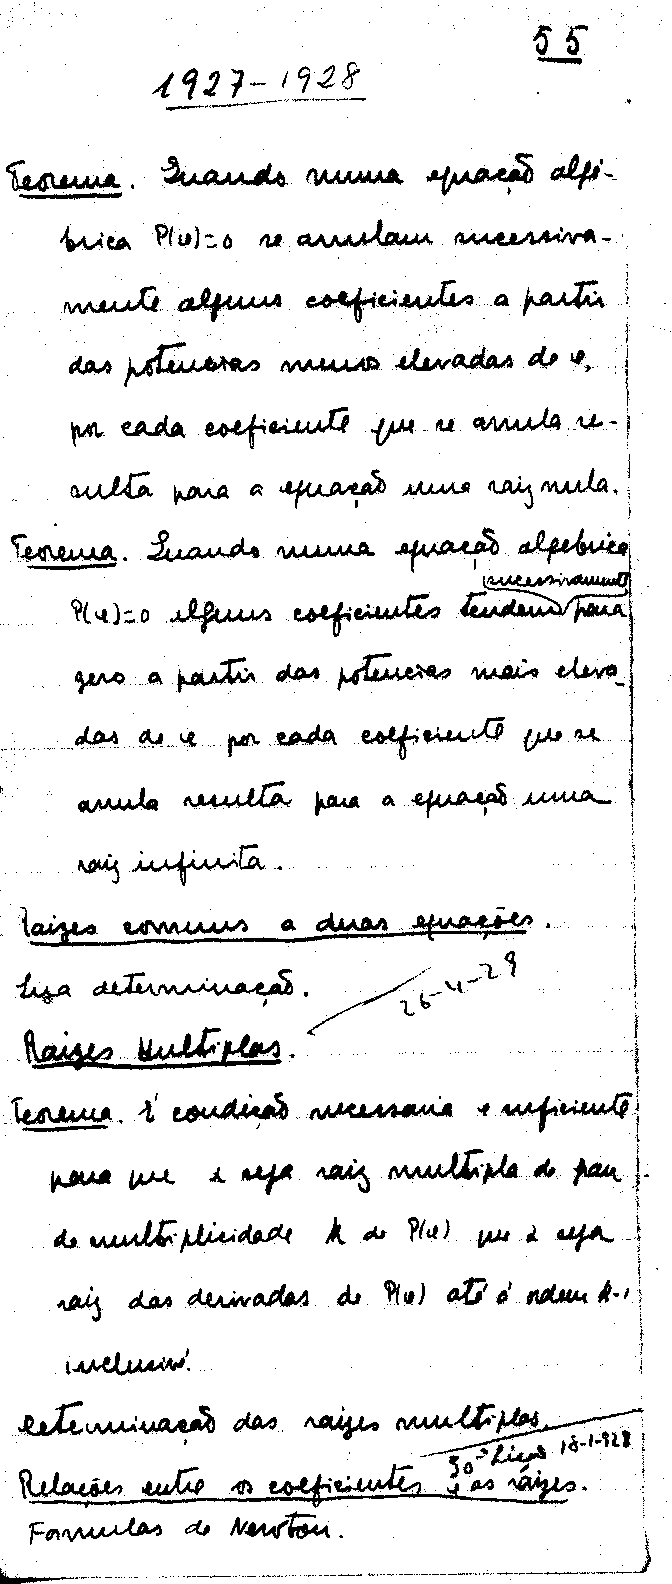 55
1927-1928
Teorema. Quando numa equação algé-
brica P(x)=0 se anulam sucessiva-
mente alguns coeficientes a partir
das potencias menos elevadas de x,
por cada coeficiente que se anula re-
sulta para a equação uma raiz nula.
Teorema. Quando numa equação algebrica
sucessivamente
P(x)=0 alguns coeficientes tendem para
zero a partir das potencias mais eleva-
das de x por cada coeficiente que se
anula resulta para a equação uma
raiz infinita.
Raizes comuns a duas equações.
Sua determinação.
Raizes Multiplas.
Teorema. É condição necessaria e suficiente
para que seja raiz multipla de grau
de multiplicidade k de P(x) que seja
raiz das derivadas de P(x) até á ordem k-1
inclusivé.
Determinação das raizes multiplas.
30ª Lição 18-1-928
Relações entre os coeficientes e as raizes.
Formulas de Newton.